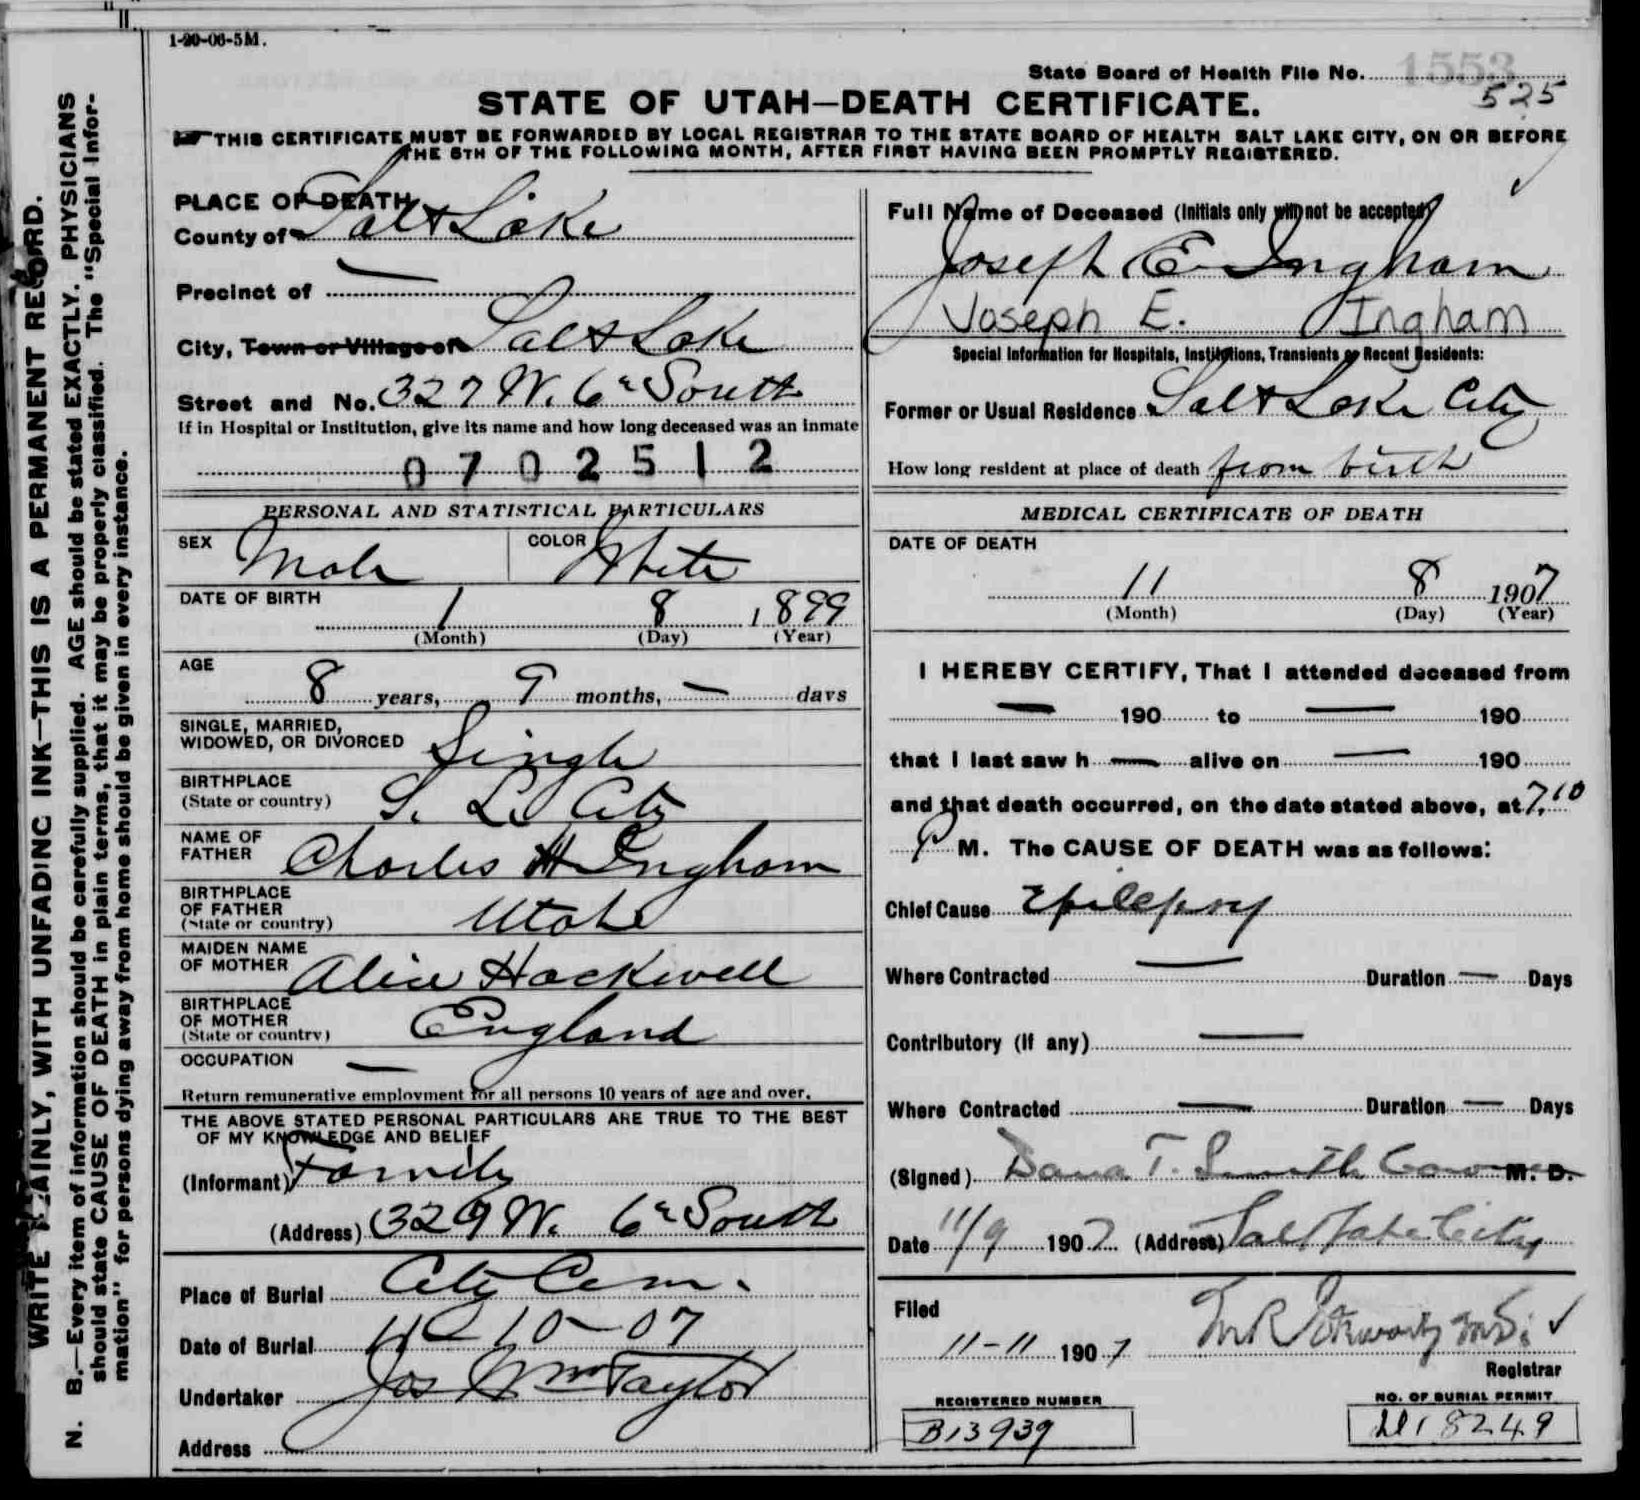 1-20-06-5M.
State Board of Health File No. 1553
525
STATE OF UTAH—DEATH CERTIFICATE.
THIS CERTIFICATE MUST BE FORWARDED BY LOCAL REGISTRAR TO THE STATE BOARD OF HEALTH SALT LAKE CITY, ON OR BEFORE
THE 5TH OF THE FOLLOWING MONTH, AFTER FIRST HAVING BEEN PROMPTLY REGISTERED.
WRITE PLAINLY, WITH UNFADING INK—THIS IS A PERMANENT RECORD.
N. B.—Every item of information should be carefully supplied. AGE should be stated EXACTLY. PHYSICIANS
should state CAUSE OF DEATH in plain terms, that it may be properly classified. The "Special Infor-
mation" for persons dying away from home should be given in every instance.
PLACE OF DEATH
County of Salt Lake
Precinct of —
City, Town or Village of Salt Lake
Street and No. 327 W. 6th South
If in Hospital or Institution, give its name and how long deceased was an inmate
0702512
PERSONAL AND STATISTICAL PARTICULARS
SEX Male COLOR White
DATE OF BIRTH
1 8 1899
(Month) (Day) (Year)
AGE
8 years, 9 months, — days
SINGLE, MARRIED,
WIDOWED, OR DIVORCED Single
BIRTHPLACE
(State or country) S. L. City
NAME OF
FATHER Charles H Ingham
BIRTHPLACE
OF FATHER
(State or country) Utah
MAIDEN NAME
OF MOTHER Alice Hackwell
BIRTHPLACE
OF MOTHER
(State or country) England
OCCUPATION —
Return remunerative employment for all persons 10 years of age and over.
THE ABOVE STATED PERSONAL PARTICULARS ARE TRUE TO THE BEST
OF MY KNOWLEDGE AND BELIEF
(Informant) Family
(Address) 329 W. 6th South
Place of Burial City Cem.
Date of Burial 11-10-07
Undertaker Jos Wm Taylor
Address
Full Name of Deceased (Initials only will not be accepted)
Joseph E Ingham
Joseph E. Ingham
Special Information for Hospitals, Institutions, Transients or Recent Residents:
Former or Usual Residence Salt Lake City
How long resident at place of death from birth
MEDICAL CERTIFICATE OF DEATH
DATE OF DEATH
11 8 1907
(Month) (Day) (Year)
I HEREBY CERTIFY, That I attended deceased from
— 190 to — 190
that I last saw h — alive on — 190
and that death occurred, on the date stated above, at 7.10
P M. The CAUSE OF DEATH was as follows:
Chief Cause Epilepsy
Where Contracted — Duration — Days
Contributory (if any) —
Where Contracted — Duration — Days
(Signed) Dana T. Smith Coroner M. D.
Date 11/9 1907 (Address) Salt Lake City
Filed
11-11 1907
Registrar
REGISTERED NUMBER
B13939
NO. OF BURIAL PERMIT
18249